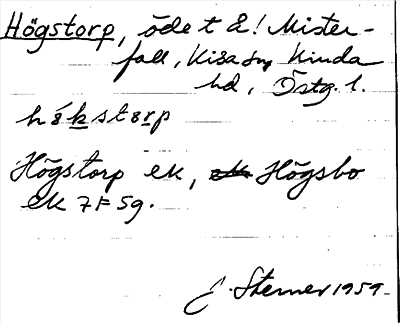 Högstorp, öde t Å! Mister-
fall, Kisa sn, Kinda
hd, Östg. l.
hökstorp
Högstorp ek, Högsbo
ek 7F5g.
E. Sterner 1959.